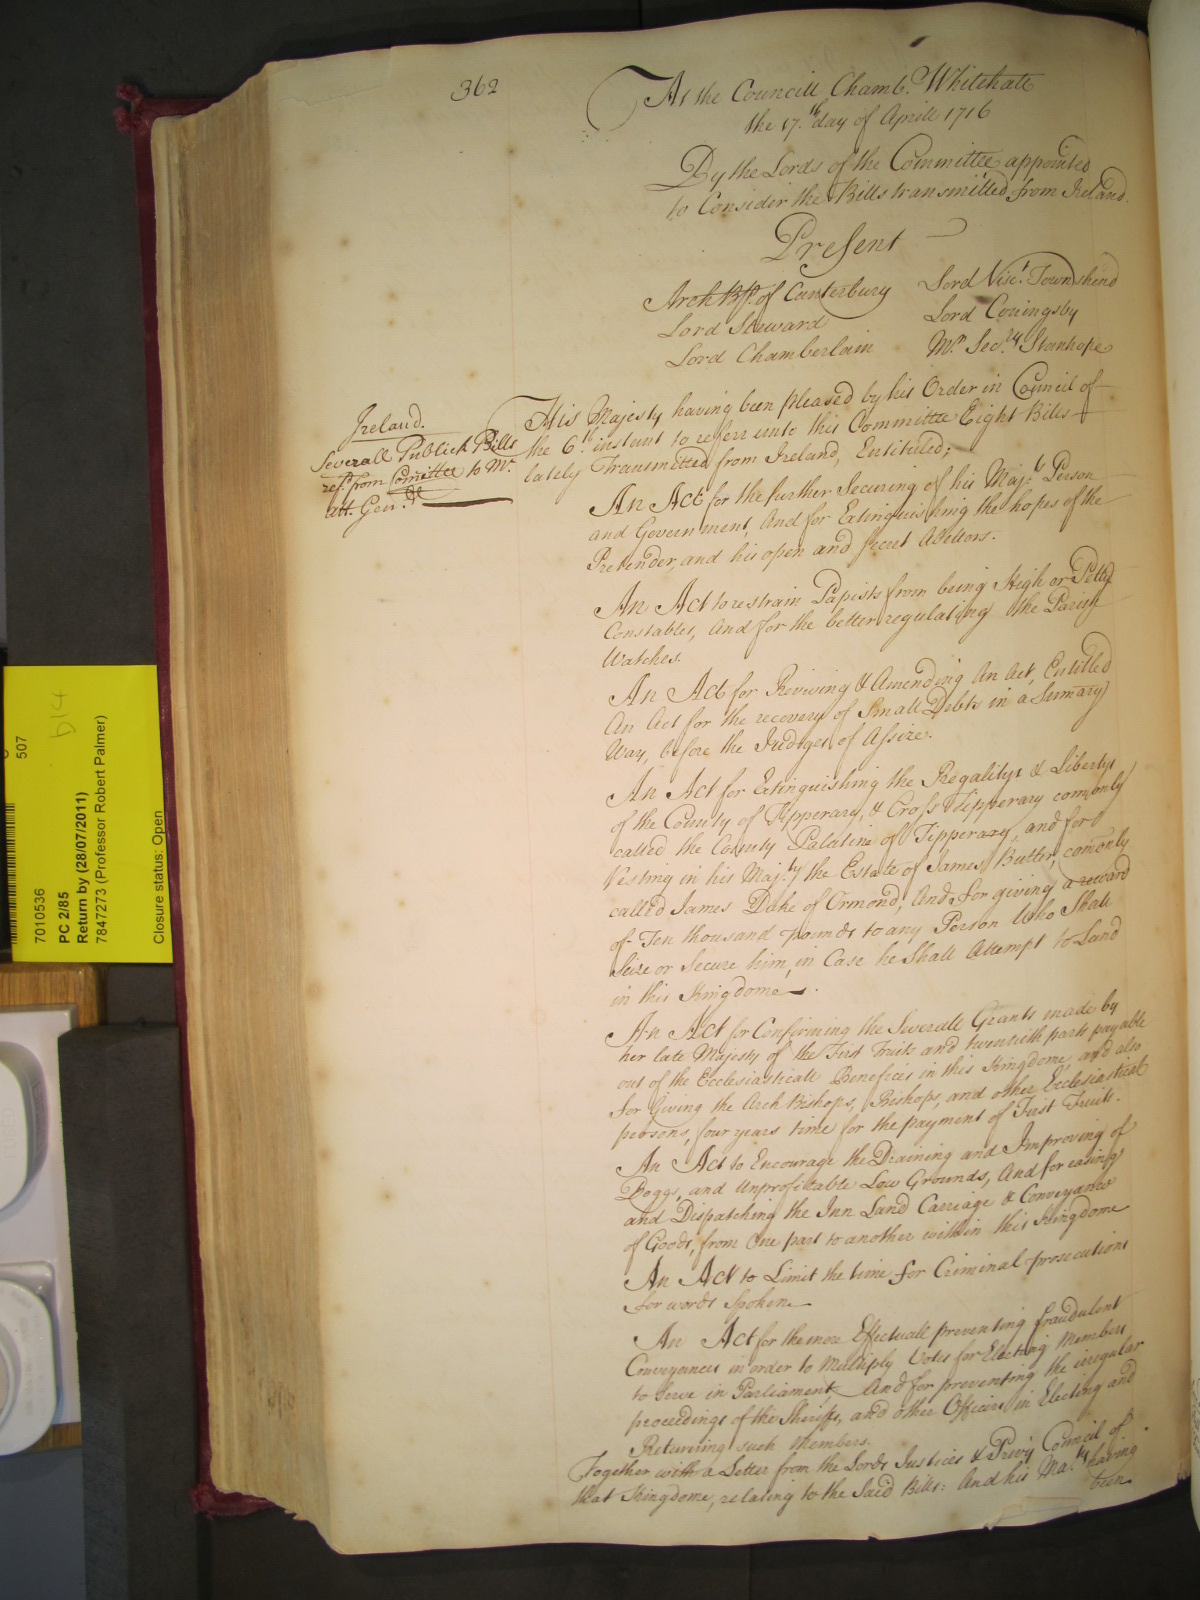 362
At the Councill Chamb.r Whitehall
the 17.th day of Aprill 1716
By the Lords of the Committee appointed
to Consider the Bills transmitted from Ireland.
Present
Arch Bp. of Canterbury
Lord Steward
Lord Chamberlain
Lord Visc.t Townshend
Lord Coningsby
Mr. Sec.ry Stanhope
Ireland.
Severall Publick Bills
ref.d from Comittee to Mr.
Att. Gen.ll
His Majesty having been pleased by his Order in Council of
the 6.th instant to referr unto this Committee Eight Bills
lately Transmitted from Ireland, Entituled;
An Act for the further Securing of his Maj.ts Person
and Government, And for Extinguishing the hopes of the
Pretender, and his open and secret Abettors.
An Act to restrain Papists from being High or Petty
Constables, And for the better regulating the Parish
Watches.
An Act for Reviving & Amending An Act, Entitled
An Act for the recovery of Small Debts in a Sumary
Way, before the Judges of Assize.
An Act for Extinguishing the Regalitys & Libertys
of the County of Tipperary, & Cross Tipperary comonly
called the County Palatine of Tipperary, and for
Vesting in his Maj.ty the Estate of James Butler, comonly
called James Duke of Ormond, And for giving a reward
of Ten thousand pounds to any Person who Shall
Seize or Secure him, in Case he Shall Attempt to Land
in this Kingdome.
An Act for Confirming the Severall Grants made by
her late Majesty of the First Fruits and twentieth parts payable
out of the Ecclesiasticall Benefices in this Kingdome, and also
for Giving the Arch Bishops, Bishops, and other Ecclesiastical
persons, four years time for the payment of First Fruits.
An Act to Encourage the Draining and Improving of
Boggs, and Unprofitable Low Grounds, And for easing
and Dispatching the Inn Land Carriage & Conveyance
of Goods, from One part to another within this Kingdome
An Act to Limit the time for Criminal prosecutions
for words Spoken
An Act for the more Effectuall preventing fraudulent
Conveyances in order to Multiply Votes for Electing Members
to Serve in Parliament, And for preventing the irregular
proceedings of the Sheriffs, and other Officers in Electing and
Returning such Members.
Together with a Letter from the Lords Justices & Privy Council of
that Kingdome, relating to the Said Bills: And his Ma.ty having
been
507
b14
7010536
PC 2/85
Return by (28/07/2011)
7847273 (Professor Robert Palmer)
Closure status: Open